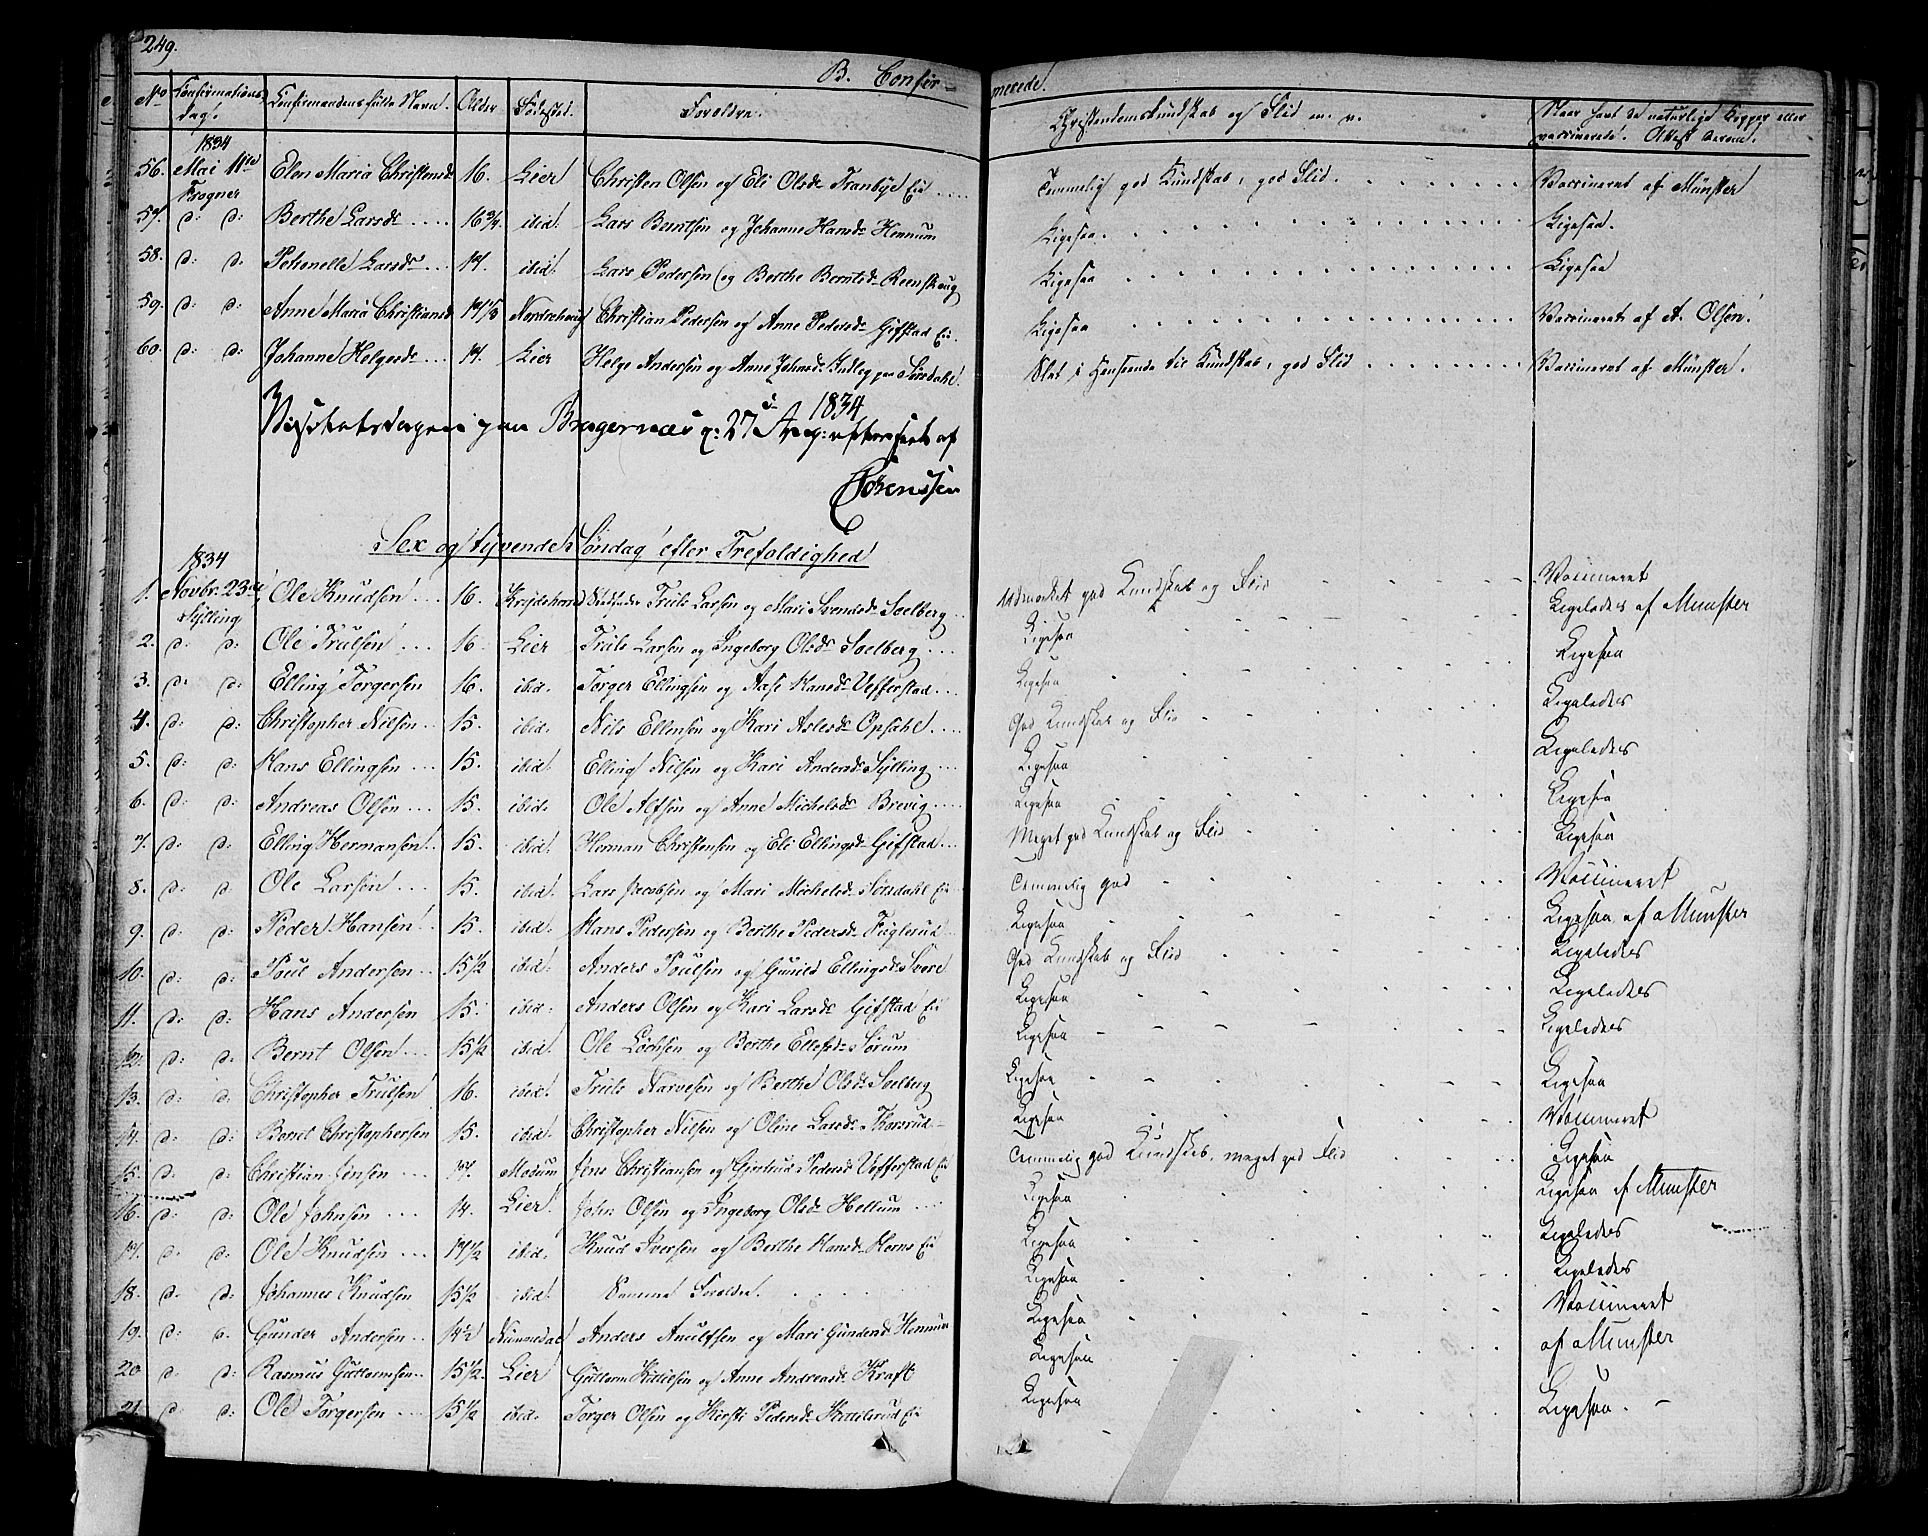 249.
B. Confir-
merede.
No
Confirmations
dag.
Confirmandens fulde Navn.
Alder
Fødested.
Forældre.
Christendomskundskab og Flid m. v.
Naar havt de naturlige Kopper eller
vaccinerede. Attest derom.
1834
56. Mai 11te Elen Maria Christensd 16. Lier Christen Olsen og Eli Olsd Tranbye Eie Temmelig god Kundskab, god Flid. Vaccineret af Münster
Frogner
57. d: d: Berthe Larsd 16 3/4 ibid. Lars Berntsen og Johanne Hansd Hennum Ligesaa. Ligesaa.
58. d: d: Petronelle Larsd 14. ibid Lars Pedersen og Berthe Berntsd Reenskoug Ligesaa Ligesaa
59. d: d: Anne Maria Christiansd 14 1/3 Norderhoug Christian Pedersen og Anne Pedersd Gifstad Eie. Ligesaa Vaccineret af A. Olsen.
60. d: d: Johanne Helgesd 14. Lier Helge Andersen og Anne Johnsd Indleg paa Sørsdahl. Slet i Henseende til Kundskab, god Flid Vaccineret af Münster.
Visitatsdagen paa Bragernæs d: 27 Aug: 1834 efterseet af
Sørenssen
Sex og tyvende Søndag efter Trefoldighed
1834
1. Novbr. 23de Ole Knudsen 16. Krydsherred Truls Larsen og Mari Svensd Solberg Udmærket god Kundskab og Flid Vaccineret
Sylling Ligeledes af Münster
2. d: d: Ole Trulsen 16. Lier Truls Larsen og Ingeborg Olsd Solberg Ligesaa Ligesaa
3. d: d: Elling Torgersen 16. ibid. Torger Ellingsen og Aase Hansd Vefferstad Ligesaa Ligeledes
4. d: d: Christopher Nilsen 15. ibid. Nils Ellensen og Kari Aslesd Opsahl God Kundskab og Flid Ligeledes
5. d: d: Hans Ellingsen 15. ibid. Elling Nilsen og Kari Andersd Sylling Ligesaa Ligesaa
6. d: d: Andreas Olsen 15. ibid. Ole Alfsen og Anne Michelsd Brevig Ligesaa Ligesaa
7. d: d: Elling Hermansen 15. ibid. Herman Christensen og Eli Ellingsd Gifstad Meget god Kundskab og Flid
8. d: d: Ole Larsen 15. ibid. Lars Jacobsen og Mari Michelsd Sørsdahl Eie Temmelig god Vaccineret
9. d: d: Peder Hansen 15. ibid. Hans Pedersen og Berthe Pedersd Figlerud Ligesaa Ligesaa af Münster
10. d: d: Poul Andersen 15 1/2 ibid. Anders Poulsen og Gunild Ellingsd Svere God Kundskab og Flid Ligeledes
11. d: d: Hans Andersen 15. ibid. Anders Olsen og Kari Larsd Gifstad Eie Ligesaa Ligeledes
12. d: d: Bernt Olsen 15 1/2 ibid. Ole Lochsen og Berthe Ellefsd Sørum Ligesaa Ligeledes
13. d: d: Christopher Trulsen 16. ibid. Truls Narvesen og Berthe Olsd Solberg Ligesaa Ligesaa
14. d: d: Bernt Christophersen 15. ibid. Christopher Nilsen og Oline Larsd Thorsrud Ligesaa Vaccineret
15. d: d: Christian Jensen 17. Modum Jens Christiansen og Gjertrud Pedersd Vefferstad Eie Temmelig god Kundskab, meget god Flid Ligesaa
16. d: d: Ole Johnsen 14. Lier John Olsen og Ingeborg Olsd Hellum Ligesaa Ligesaa af Münster
17. d: d: Ole Knudsen 17 1/2 ibid. Knud Iversen og Berthe Hansd Horns Eie Ligesaa Ligeledes
18. d: d: Johannes Knudsen 15 1/2 ibid. Samme Forældre. Ligesaa Ligeledes
19. d: d: Gunder Andersen 14 1/2 Nummedal Anders Anulfsen og Mari Gundersd Hennum Ligesaa Vaccineret
af Münster
20 d: d: Rasmus Guttormsen 15 1/2 Lier Guttorm Kittilsen og Anne Andreasd Kraft Ligesaa
21. d: d: Ole Torgersen 15 1/2 ibid. Torger Olsen og Kirsti Pedersd Kittilsrud Eie Ligesaa Ligesaa.